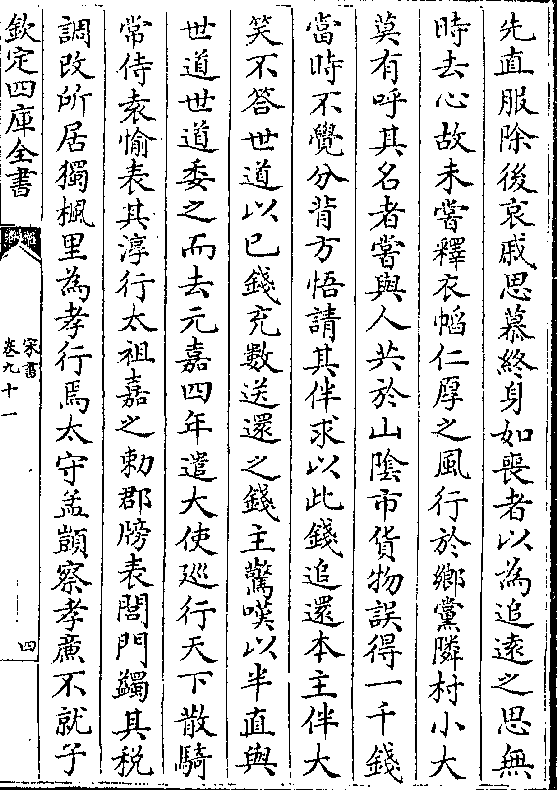 先直服除後哀戚思慕終身如喪者以為追遠之思無
時去心故未嘗釋衣幍仁厚之風行於鄉黨隣村小大
莫有呼其名者嘗與人共於山陰市貨物誤得一千錢
當時不覺分背方悟請其伴求以此錢追還本主伴大
笑不答世道以已錢充數送還之錢主驚嘆以半直與
世道世道委之而去元嘉四年遣大使巡行天下散騎
常侍袁愉表其淳行太祖嘉之勅郡牓表閭門蠲其税
調改所居獨楓里為孝行焉太守孟顗察孝廉不就子
欽定四庫全書
宋書
卷九十一
四